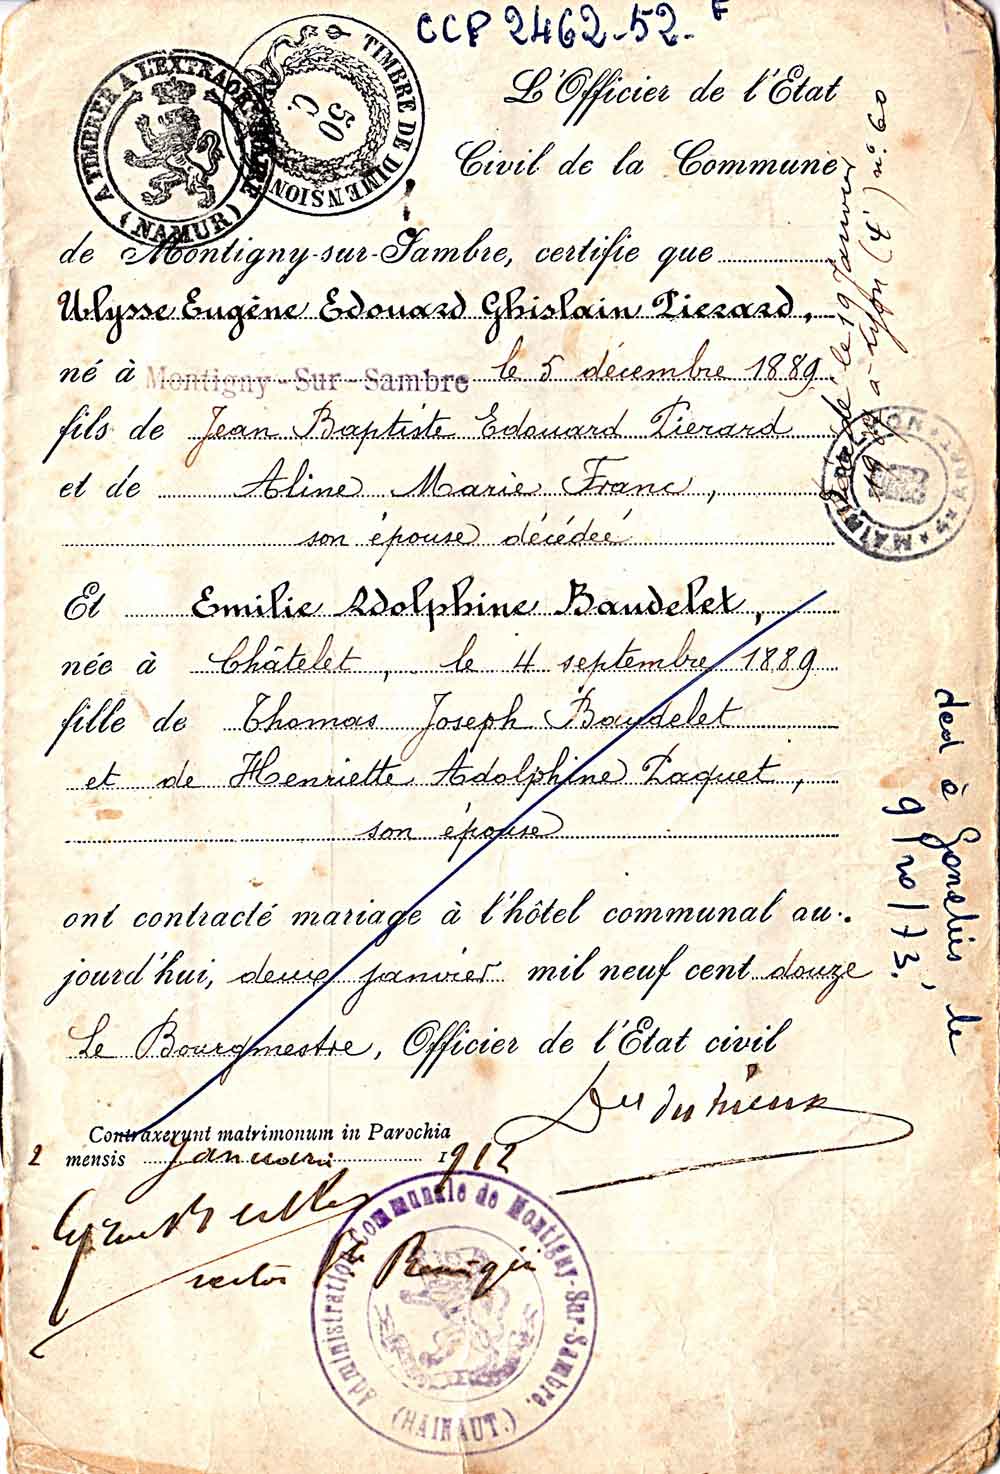 CCP 2462-52- F
A TIMBRER A L'EXTRAORDINAIRE
(NAMUR)
TIMBRE DE DIMENSION
50 C.
L'Officier de l'Etat
Civil de la Commune
de Montigny-sur-Sambre, certifie que
Ulysse Eugène Edouard Ghislain Pierard,
né à Montigny-Sur-Sambre le 5 décembre 1889
fils de Jean Baptiste Edouard Pierard
et de Aline Marie Franc,
son épouse décédée
Et Emilie Adolphine Baudelet,
née à Châtelet, le 4 septembre 1889
fille de Thomas Joseph Baudelet
et de Henriette Adolphine Paquet,
son épouse
ont contracté mariage à l'hôtel communal au-
jourd'hui, deux janvier mil neuf cent douze
Le Bourgmestre, Officier de l'Etat civil
Contraxerunt matrimonum in Parochia
2 mensis Januarii 1912
rector St Remigii
Administration Communale de Montigny-Sur-Sambre.
(HAINAUT.)
le 19 Janvier
à Lyon (4e) n° 60
MAIRIE
ded à Gonehies, le
9/10/73.